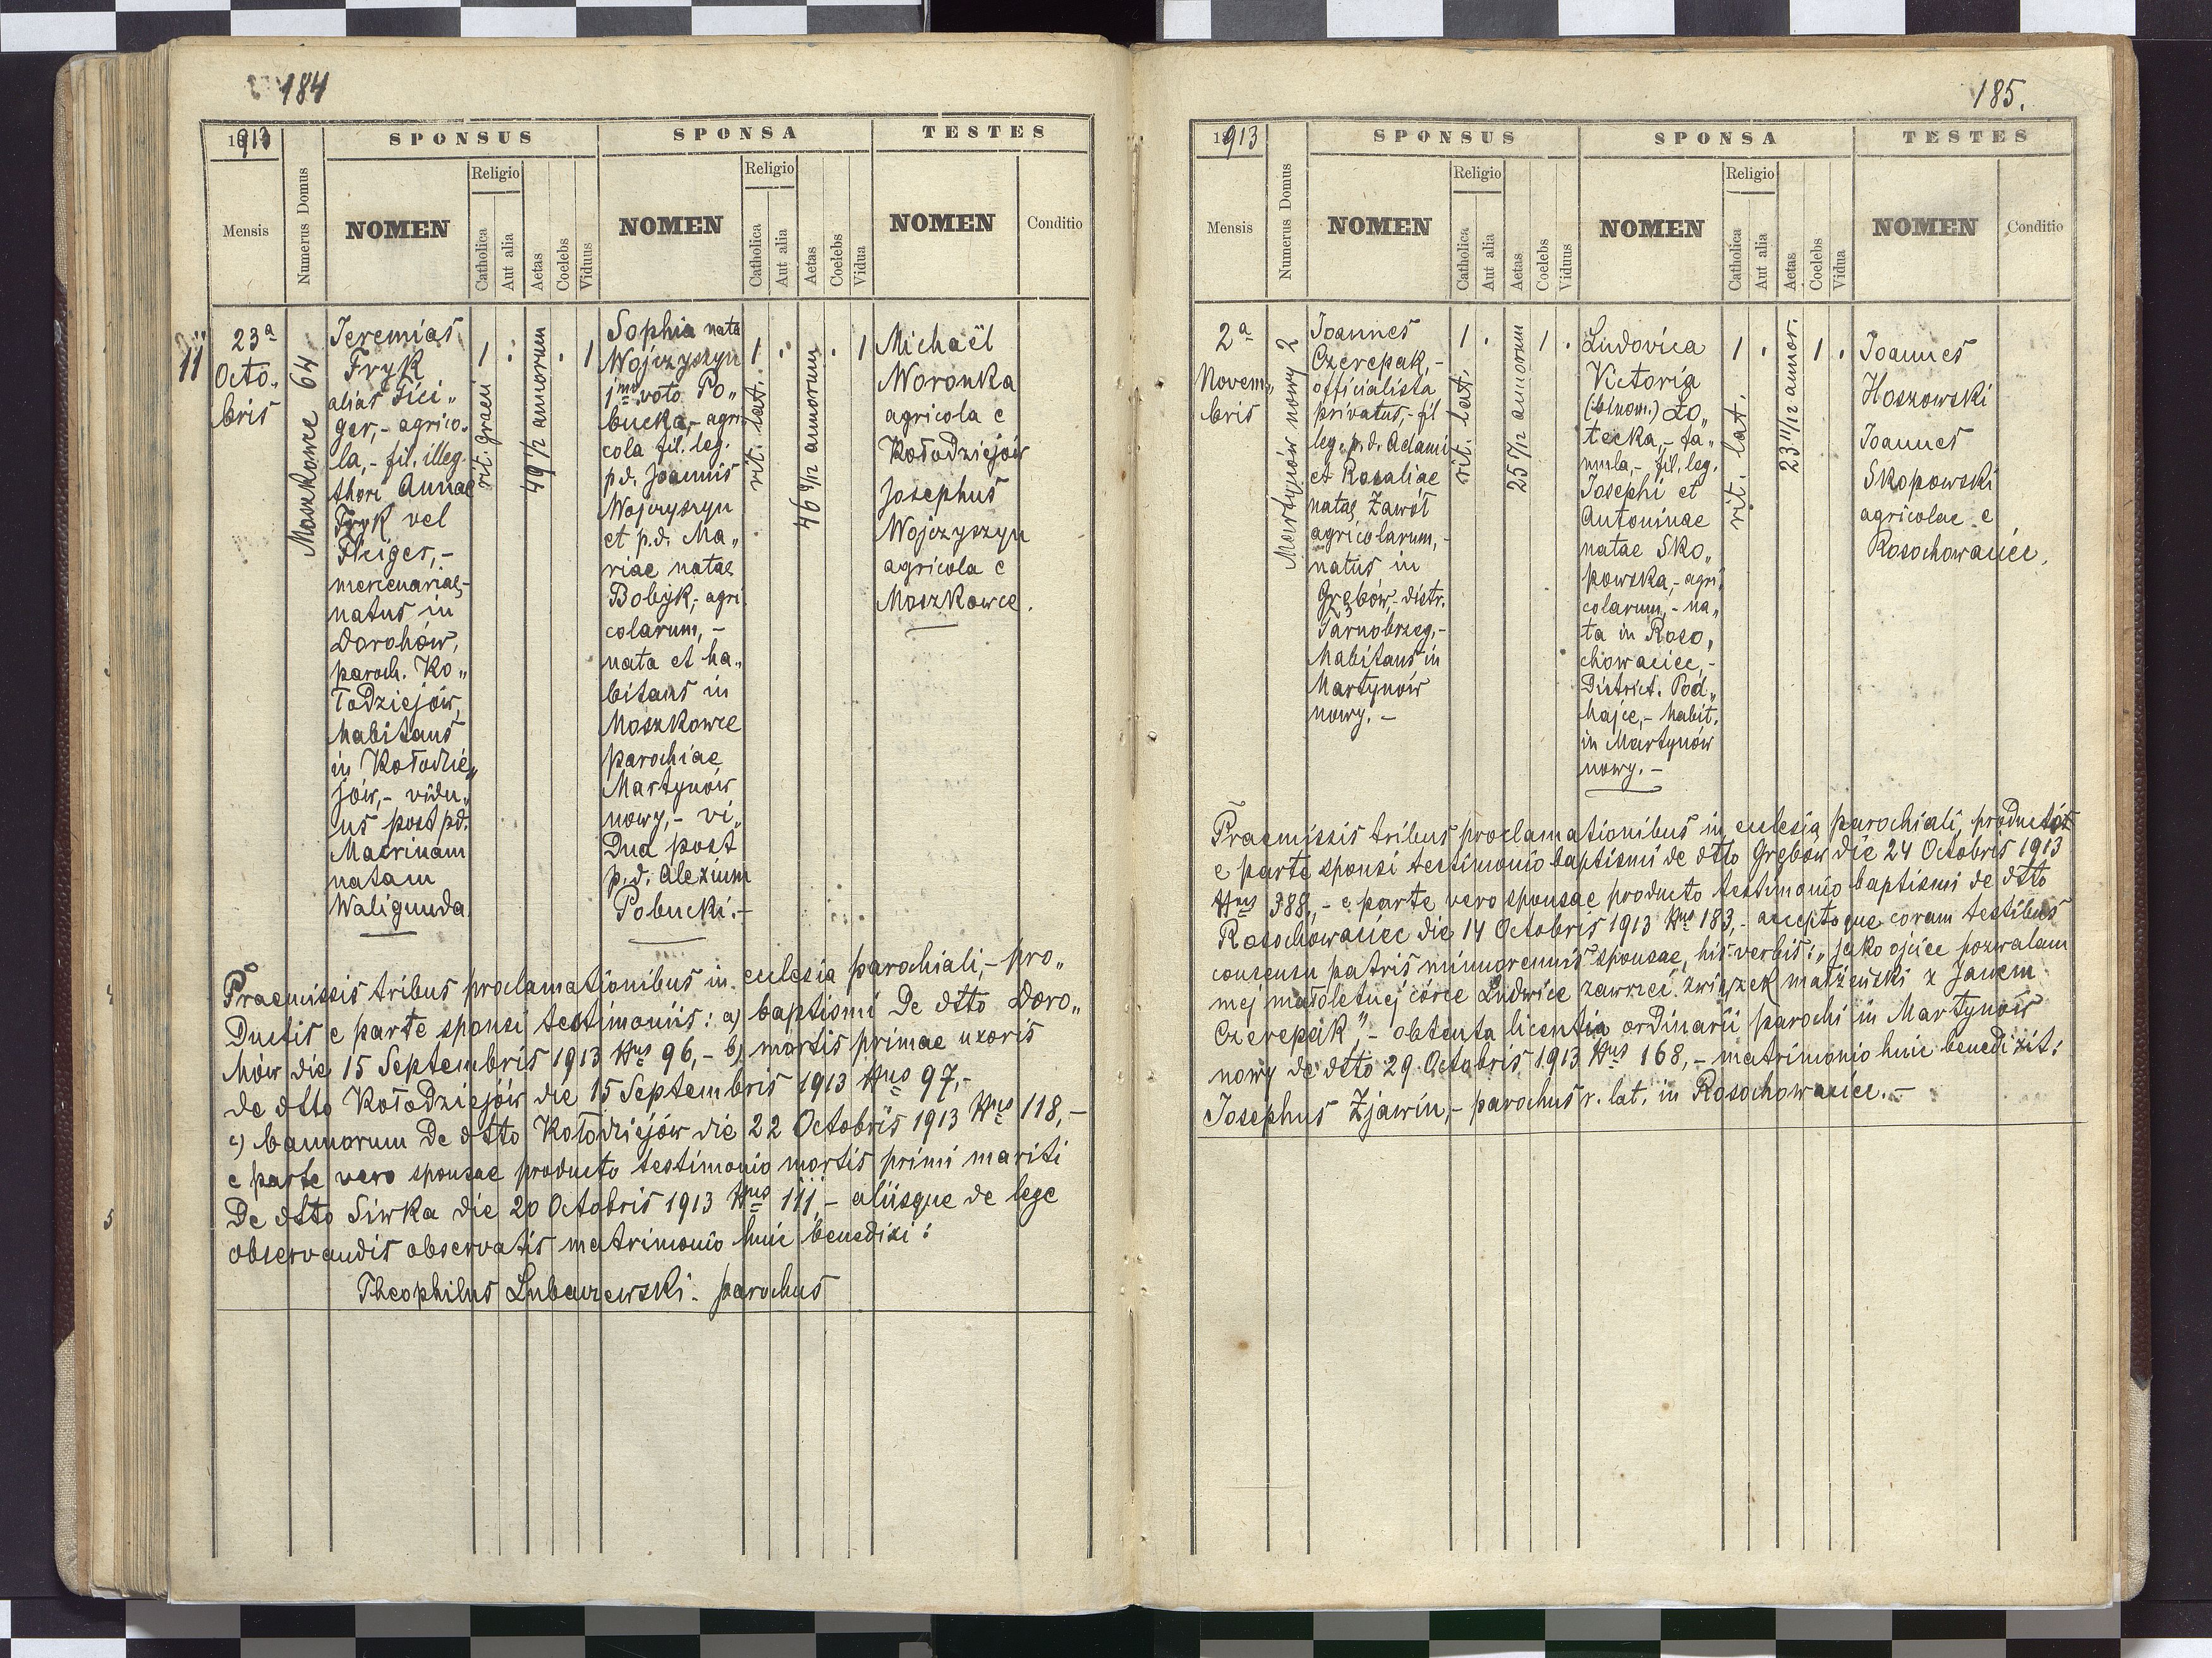 184
1913
SPONSUS
SPONSA
TESTES
Mensis
Numerus Domus
NOMEN
Religio
Catholica
Aut alia
Aetas
Coelebs
Viduus
NOMEN
Religio
Catholica
Aut alia
Aetas
Coelebs
Vidua
NOMEN
Conditio
11
23a
Octo„
bris
Moszkowce 64
Jeremias
Fryk
alias Fici„
ger,- agrico„
la,- fil. illeg.
thori Annae
Fryk vel
Fleiger,-
mercenariae,-
natus in
Dorohów,
paroch. Ko„
łodziejów,
habitans
in Kołodzie„
jów,- vidu„
us post pd.
Macrinam
natam
Waligunda
1
rit. graeci
.
49 1/2 annorum
.
1
Sophia nata
Wojczyszyn
1mo voto Po„
bucka,- agri
cola fil. leg.
p.d. Joannis
Wojczyszyn
et p.d. Ma„
riae natae
Bobyk,- agri
colarum,-
nata et ha„
bitans in
Moszkowce
parochiae
Martynów
nowy,- vi„
dua post
p.d. Alexium
Pobucki.-
1
rit. lat.
.
46 9/12 annorum
.
1
Michaël
Woronka
agricola e
Kołodziejów
Josephus
Wojczyszyn
agricola e
Moszkowce.
Praemissis tribus proclamationibus in ecclesia parochiali,- pro„
ductis e parte sponsi testimoniis: a) baptismi de dtto Doro„
hów die 15 Septembris 1913 Nrus 96,- b) mortis primae uxoris
de dtto Kołodziejów die 15 Septembris 1913 Nrus 97,-
c) bannorum de dtto Kołodziejów die 22 Octobris 1913 Nrus 118,-
e parte vero sponsae producto testimonio mortis primi mariti
de dtto Siwka die 20 Octobris 1913 Nrus 111,- aliisque de lege
observandis observatis matrimonio huic benedixi:
Theophilus Lubaczewski. parochus
185.
1913
SPONSUS
SPONSA
TESTES
Mensis
Numerus Domus
NOMEN
Religio
Catholica
Aut alia
Aetas
Coelebs
Viduus
NOMEN
Religio
Catholica
Aut alia
Aetas
Coelebs
Vidua
NOMEN
Conditio
2a
Novem„
bris
Martynów nowy 2
Joannes
Czerepak,-
officialista
privatus,- fil
leg. p.d. Adami
et Rosaliae
natae Zawół
agricolarum,-
natus in
Grębów,- distr.
Tarnobrzeg,-
habitans in
Martynów
nowy.-
1
rit. lat.
.
25 5/12 annorum
1
.
Ludovica
Victoria
(:binom:) Lo„
tecka,- fa„
mula,- fil. leg.
Josephi et
Antoninae
natae Sko„
powska,- agri„
colarum,- na„
ta in Roso„
chowaciec,-
District. Pod„
hajce,- habit.
in Martynów
nowy.-
1
rit. lat.
.
23 11/12 annor.
1
.
Joannes
Hoszowski
Joannes
Skopowski
agricolae e
Rosochowaciec.
Praemissis tribus proclamationibus in ecclesia parochiali, producto
e parte sponsi testimonio baptismi de dtto Grębów die 24 Octobris 1913
Nrus 388,- e parte vero sponsae producto testimonio baptismi de dtto
Rosochowaciec die 14 Octobris 1913 Nrus 183,- acceptoque coram testibus
consensu patris minorennis sponsae, his verbis: „jako ojciec pozwalam
mej małoletniej córce Ludwice zawrzeć związek małżeński z Janem
Czerepak”- obtenta licentia ordinarii parochi in Martynów
nowy de dtto 29 Octobris 1913 Nrus 168,- matrimonio huic benedixit:
Josephus Zjawin,- parochus r. lat. in Rosochowaciec.-